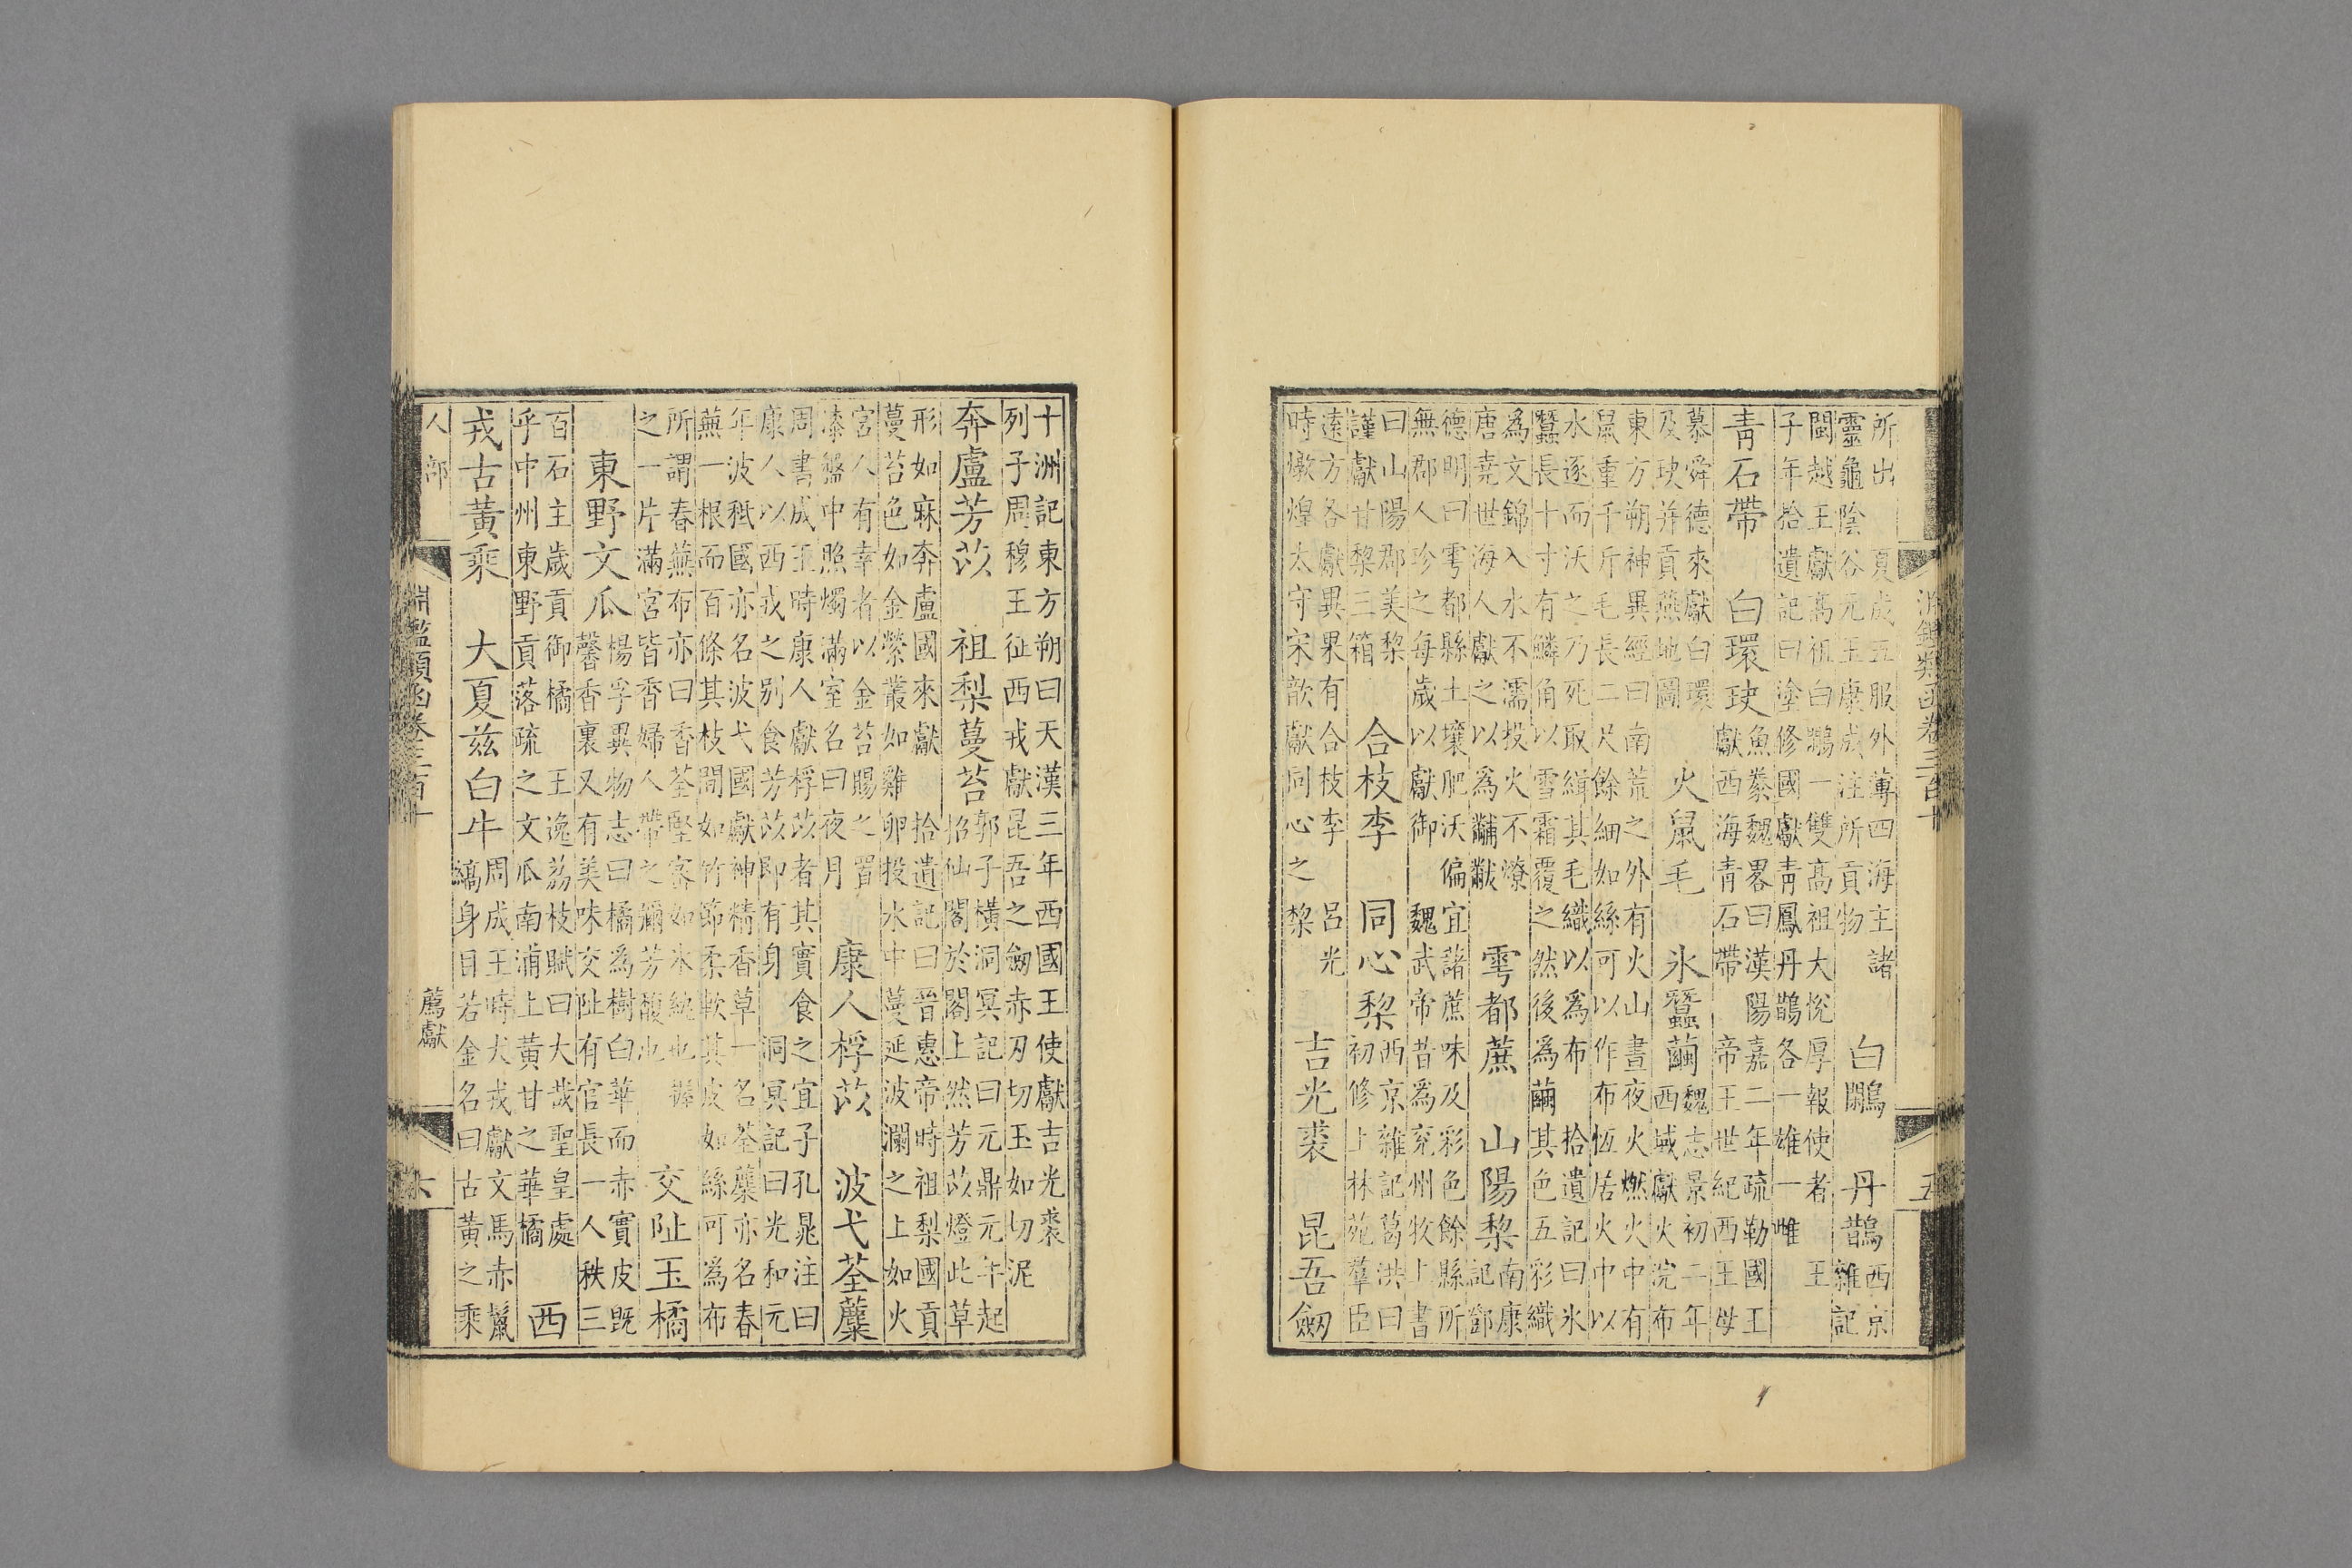 所出　夏成五服外薄四海主諸
靈龜陰谷元玉康成注所貢物　白鷴　丹鵲西京雜記
閩越王獻高祖白鷴一雙高祖大悅厚報使者　王
子年拾遺記曰塗修國獻青鳳丹鵲各一雄一雌
青石帶　白環玦魚豢魏畧曰漢陽嘉二年疏勒國王
獻西海青石帶　帝王世紀西王母
慕舜德來獻白環
及玦并貢燕地圖　火鼠毛　氷蠶繭魏志景初二年
西域獻火浣布
東方朔神異經曰南荒之外有火山晝夜火燃火中有
鼠重千斤毛長二尺餘細如絲可以作布恆居火中以
水逐而沃之乃死取緝其毛織以爲布　拾遺記曰氷
蠶長十寸有鱗角以雪霜覆之然後爲繭其色五彩織
爲文錦入水不濡投火不燎
唐堯世海人獻之以爲黼黻　雩都蔗　山陽棃南康
記鄧
德明曰雩都縣土壤肥沃偏宜諸蔗味及彩色餘縣所
無郡人珍之每歲以獻御　魏武帝昔爲兗州牧上書
曰山陽郡美棃
謹獻甘棃三箱　合枝李　同心棃西京雜記葛洪曰
初修上林苑羣臣
遠方各獻異果有合枝李　呂光
時燉煌太守宋歆獻同心之棃　吉光裘　昆吾劒
淵鑑類函卷三百十
五
十洲記東方朔曰天漢三年西國王使獻吉光裘
列子周穆王征西戎獻昆吾之劒赤刃切玉如切泥
奔盧芳苡　祖梨蔓苔郭子橫洞冥記曰元鼎元年起
招仙閣於閣上然芳苡燈此草
形如麻奔盧國來獻　拾遺記曰晉惠帝時祖梨國貢
蔓苔色如金縈叢如雞卵投水中蔓延波瀾之上如火
宮人有幸者以金苔賜之置
漆盤中照燭滿室名曰夜月　康人桴苡　波弋荃蘪
周書成王時康人獻桴苡者其實食之宜子孔晁注曰
康人以西戎之別食芳苡即有身　洞冥記曰光和元
年波秪國亦名波弋國獻神精香草一名荃蘪亦名春
蕪一根而百條其枝間如竹節柔軟其皮如絲可爲布
所謂春蕪布亦曰香荃堅密如氷紈也握
之一片滿宮皆香婦人帶之彌芳馥也　交阯玉橘
東野文瓜楊孚異物志曰橘爲樹白華而赤實皮既
馨香裏又有美味交阯有官長一人秩三
百石主歲貢御橘　王逸荔枝賦曰大哉聖皇處
乎中州東野貢落疏之文瓜南浦上黃甘之華橘　西
戎古黃乘　大夏茲白牛周成王時犬戎獻文馬赤鬣
縞身目若金名曰古黃之乘
人部
淵鑑類函卷三百十
薦獻
六